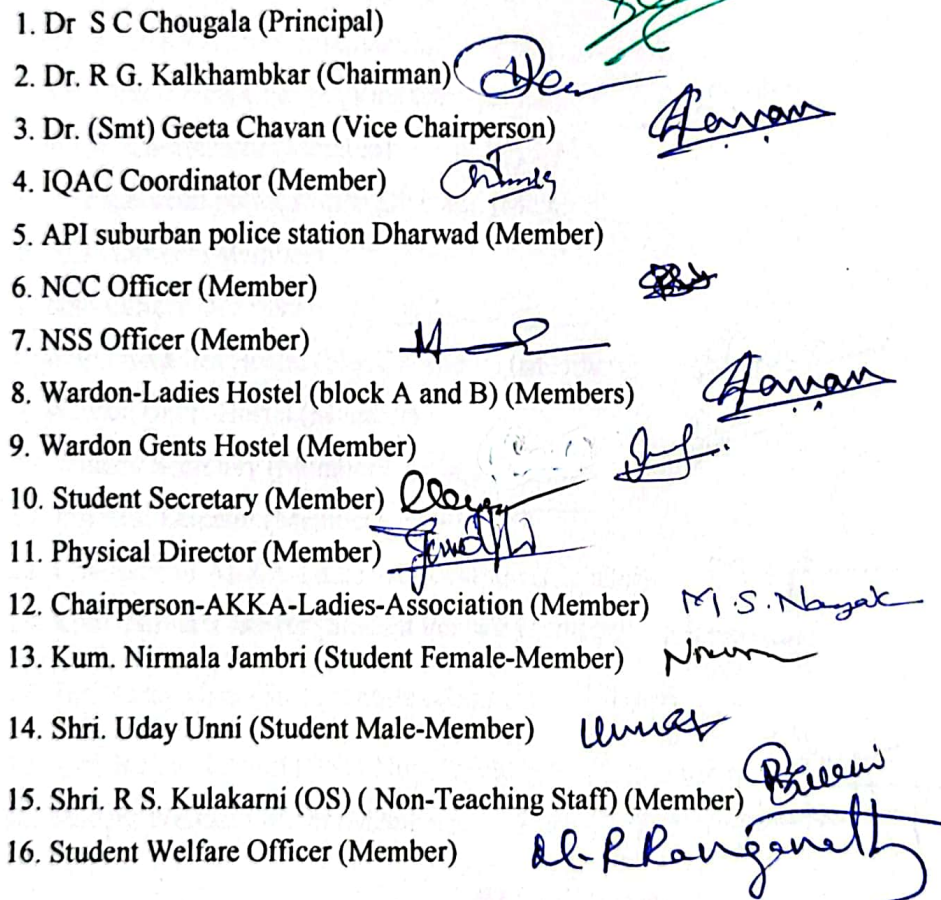 1. Dr S C Chougala (Principal)
2. Dr. R G. Kalkhambkar (Chairman)
3. Dr. (Smt) Geeta Chavan (Vice Chairperson)
4. IQAC Coordinator (Member)
5. API suburban police station Dharwad (Member)
6. NCC Officer (Member)
7. NSS Officer (Member)
8. Wardon-Ladies Hostel (block A and B) (Members)
9. Wardon Gents Hostel (Member)
10. Student Secretary (Member)
11. Physical Director (Member)
12. Chairperson-AKKA-Ladies-Association (Member) M.S. Nayak
13. Kum. Nirmala Jambri (Student Female-Member)
14. Shri. Uday Unni (Student Male-Member)
15. Shri. R S. Kulakarni (OS) ( Non-Teaching Staff) (Member)
16. Student Welfare Officer (Member)